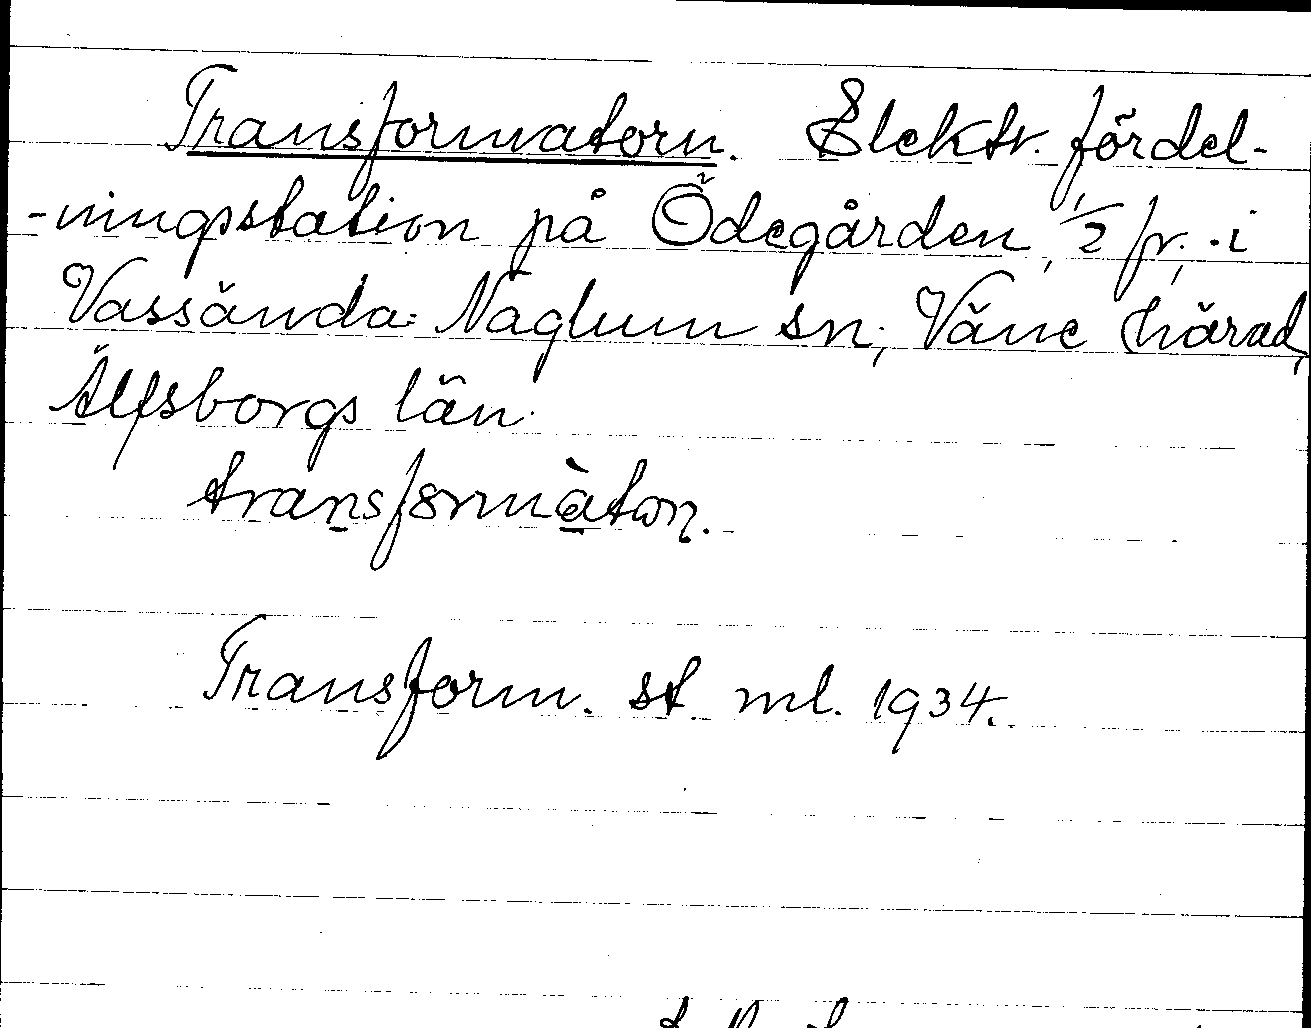 Transformatorn. Elektr. fördel-
-ningsstation på Ödegården, 1/2 fr, i
Vassända-Naglum sn, Väne härad,
Älfsborgs län.
transformàton.
Transform. st. ml. 1934.